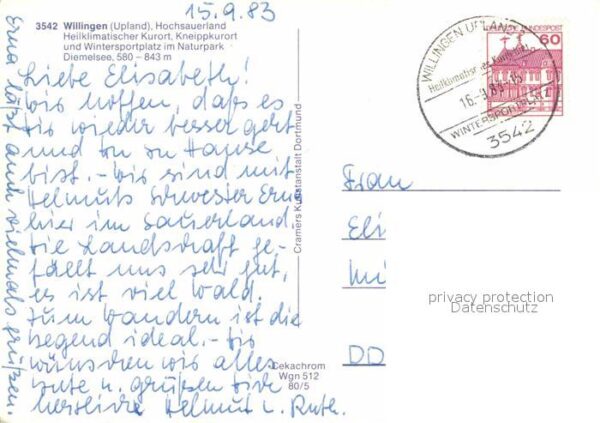 15.9.83
3542 Willingen (Upland), Hochsauerland
Heilklimatischer Kurort, Kneippkurort
und Wintersportplatz im Naturpark
Diemelsee, 580 – 843 m
Liebe Elisabeth!
Wir hoffen, daß es
Dir wieder besser geht
und Du zu Hause
bist. - Wir sind mit
Helmuts Schwester Erna
hier im Sauerland.
Die Landschaft ge-
fällt uns sehr gut,
es ist viel Wald.
Zum Wandern ist die
Gegend ideal. - Dir
wünschen wir alles
Gute u. grüßen Dich
herzlich Helmut u. Ruth.
Erna läßt auch vielmals grüßen.
Cramers Kunstanstalt Dortmund
Cekachrom
Wgn 512
80/5
WILLINGEN UPLAND
Heilklimatischer Kurort
16.-9.83
WINTERSPORTPLATZ
3542
BUNDESPOST
60
Frau
Eli
DD
privacy protection
Datenschutz